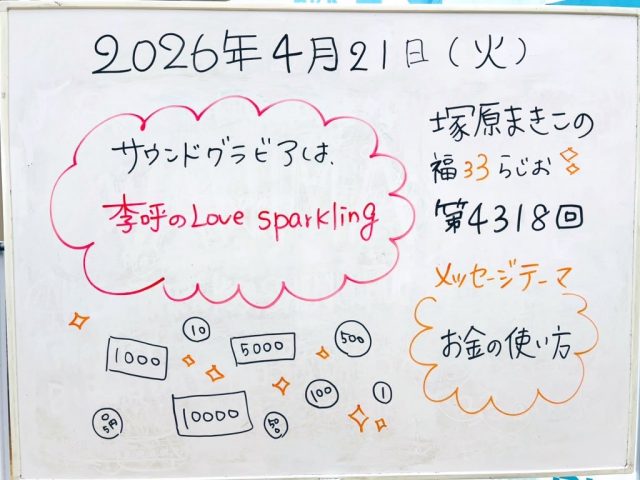 2026年4月21日(火)
サウンドグラビアは、
李呼のLove sparkling
塚原まきこの
福33らじお
第4318回
メッセージテーマ
お金の使い方
10
1000
5000
500
100
1
10000
5円
50